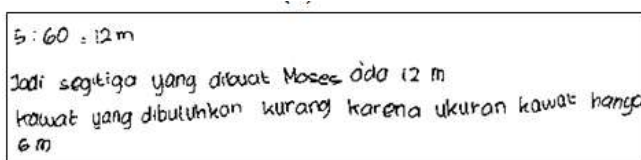 5 : 60 = 12 m
Jadi segitiga yang dibuat Moses ada 12 m
kawat yang dibutuhkan kurang karena ukuran kawat hanya
6 m